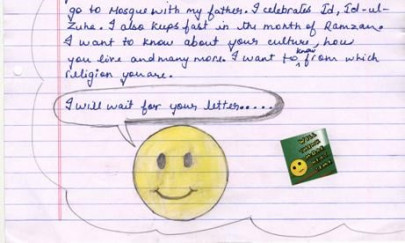 go to Mosque with my father. I celebrates Id, Id-ul-
Zuha. I also keeps fast in the month of Ramzan.
I want to know about your culture, how
you live and many more. I want to know from which
religion you are.
I will wait for your letter.....